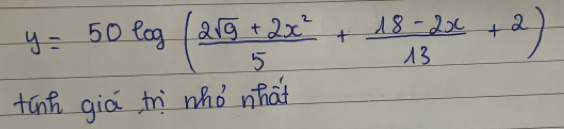 y = 50 log ( (2√9 + 2x²)/5 + (18 - 2x)/13 + 2 )
tính giá trị nhỏ nhất